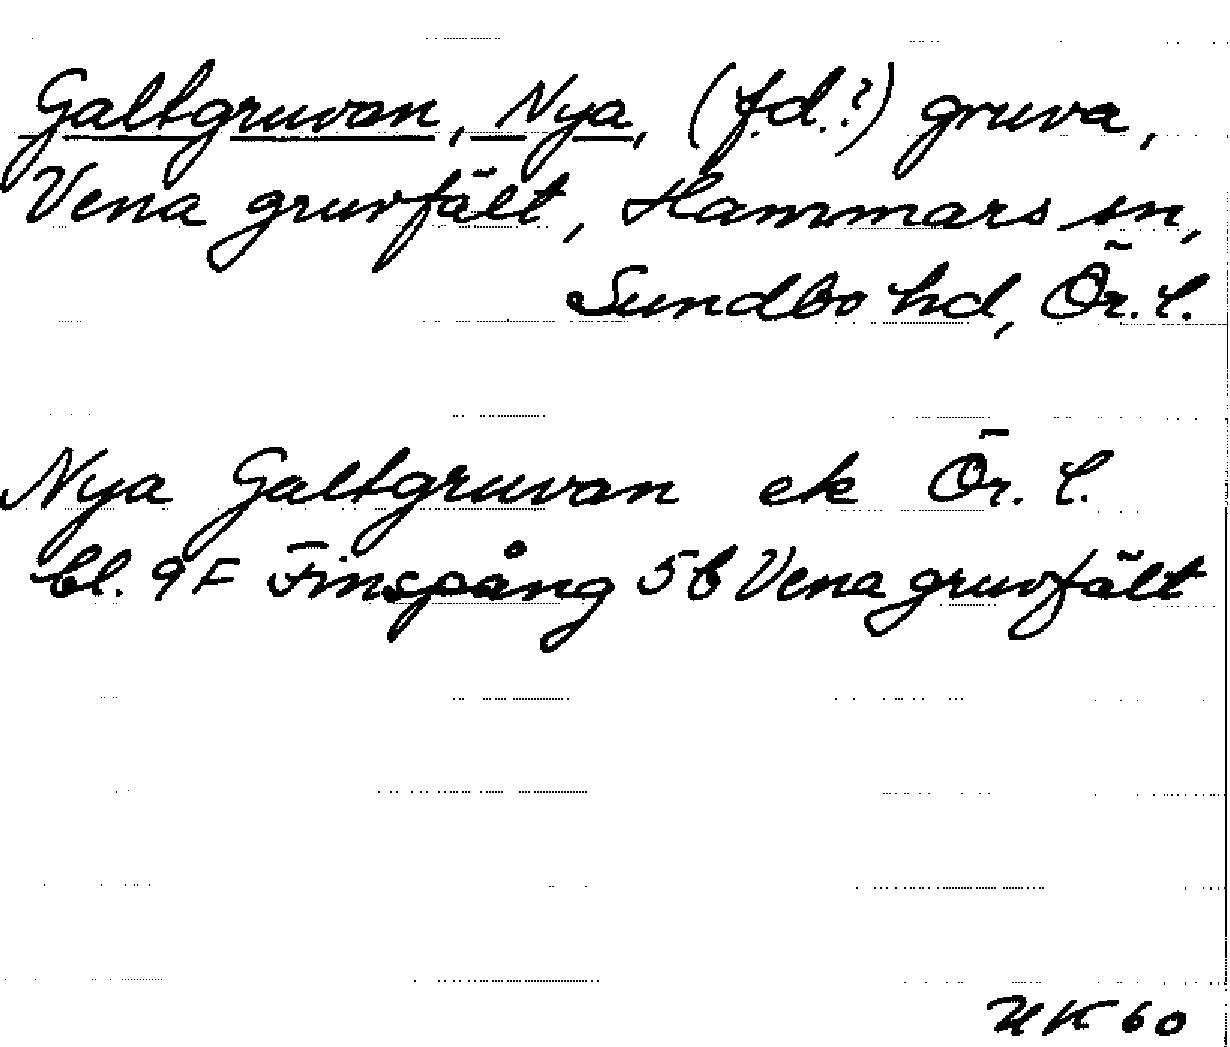 Galtgruvan, Nya, (f.d.?) gruva,
Vena gruvfält, Hammars sn,
Sundbo hd, Ör. l.
Nya Galtgruvan ek Ör. l.
bl. 9F Finspång 5b Vena gruvfält
UK 60